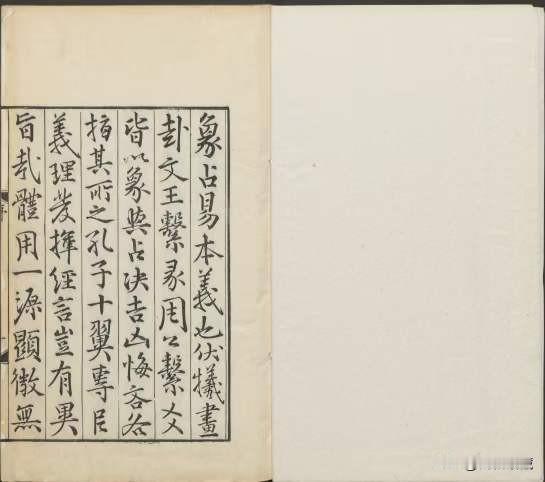 象占易本義也伏犧畫
卦文王繫彖周公繫爻
皆以象與占决吉凶悔吝各
指其所之孔子十翼專以
義理發揮經言豈有異
旨哉體用一源顯微無
序